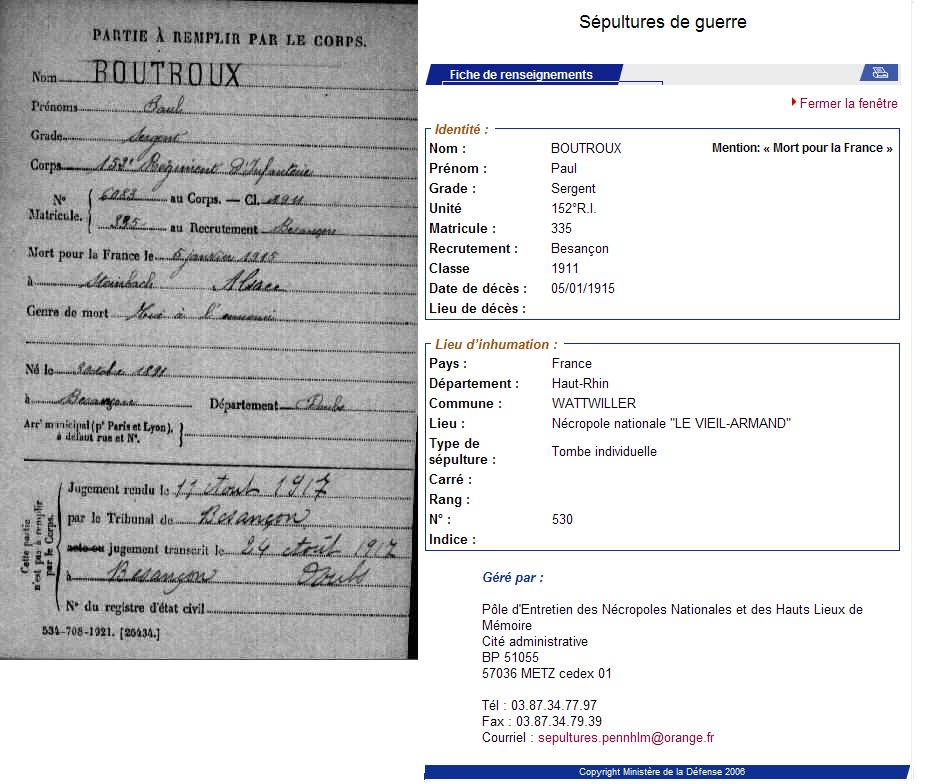 PARTIE À REMPLIR PAR LE CORPS.
Nom BOUTROUX
Prénoms Paul
Grade Sergent
Corps 152e Régiment d'Infanterie
N° Matricule. { 6083 au Corps. — Cl. 1911
335 au Recrutement Besançon
Mort pour la France le 5 janvier 1915
à Steinbach Alsace
Genre de mort Tué à l'ennemi
Né le 1891
à Besançon Département Doubs
Arrt municipal (pr Paris et Lyon), à défaut rue et N°. }
Cette partie n'est pas à remplir par le Corps.
Jugement rendu le 11 Août 1917
par le Tribunal de Besançon
acte ou jugement transcrit le 24 août 1917
à Besançon Doubs
N° du registre d'état civil
534-708-1921. [26434.]
Sépultures de guerre
Fiche de renseignements
Fermer la fenêtre
Identité :
Nom : BOUTROUX Mention: « Mort pour la France »
Prénom : Paul
Grade : Sergent
Unité 152°R.I.
Matricule : 335
Recrutement : Besançon
Classe 1911
Date de décès : 05/01/1915
Lieu de décès :
Lieu d'inhumation :
Pays : France
Département : Haut-Rhin
Commune : WATTWILLER
Lieu : Nécropole nationale "LE VIEIL-ARMAND"
Type de sépulture : Tombe individuelle
Carré :
Rang :
N° : 530
Indice :
Géré par :
Pôle d'Entretien des Nécropoles Nationales et des Hauts Lieux de
Mémoire
Cité administrative
BP 51055
57036 METZ cedex 01
Tél : 03.87.34.77.97
Fax : 03.87.34.79.39
Courriel : sepultures.pennhlm@orange.fr
Copyright Ministère de la Défense 2006